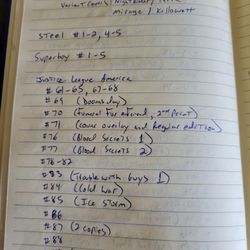 Variant Covers / Nightwatch /
Mirage / Killowatt
Steel #1-2, 4-5
Superboy #1-5
Justice League America
#61-65, 67-68
#69 (Doomsday)
#70 (Funeral For A Friend, 2nd Print)
#71 (cover overlay and Regular edition)
#76 (Blood Secrets 1)
#77 (Blood Secrets 2)
#78-82
#83 (Trouble with Guys 1)
#84 (Cold War)
#85 (Ice Storm)
#86
#87 (2 copies)
#88